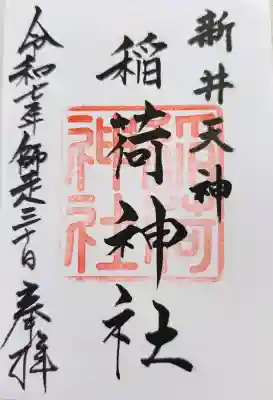 新井天神
稲荷神社
令和七年師走三十日
奉拝
稲荷
神社